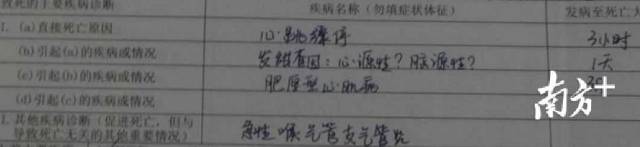 致死的主要疾病诊断 疾病名称（勿填症状体征） 发病至死亡大
I. (a)直接死亡原因 心跳骤停 3小时
(b)引起(a)的疾病或情况 发绀查因：心源性？脑源性？ 1天
(c)引起(b)的疾病或情况 肥厚型心肌病
(d)引起(c)的疾病或情况
南方+
I.其他疾病诊断（促进死亡，但与 急性喉气管支气管炎
导致死亡无关的其他重要情况）